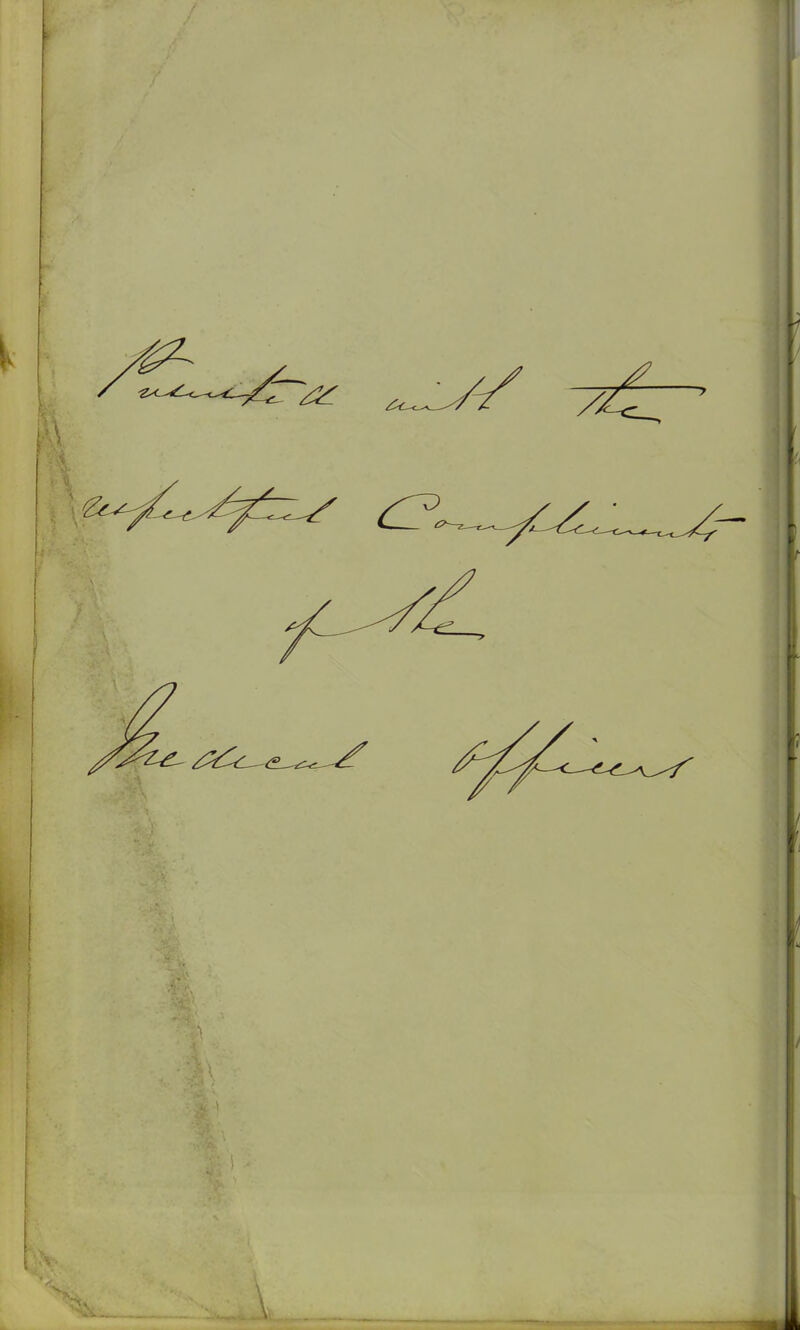 Presented with the
respectful Compliments
of the
Medical Officers